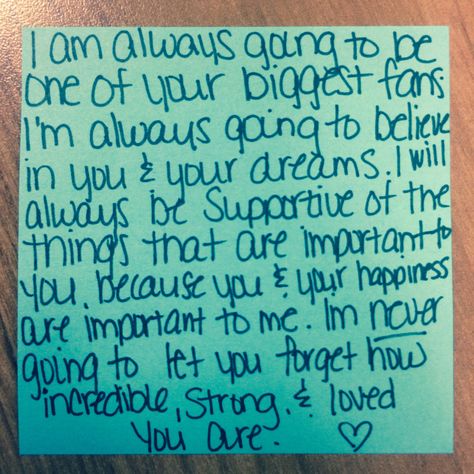 I am always going to be
one of your biggest fans.
I'm always going to believe
in you & your dreams. I will
always be supportive of the
things that are important to
you, because you & your happiness
are important to me. I'm never
going to let you forget how
incredible, strong, & loved
you are. ♡